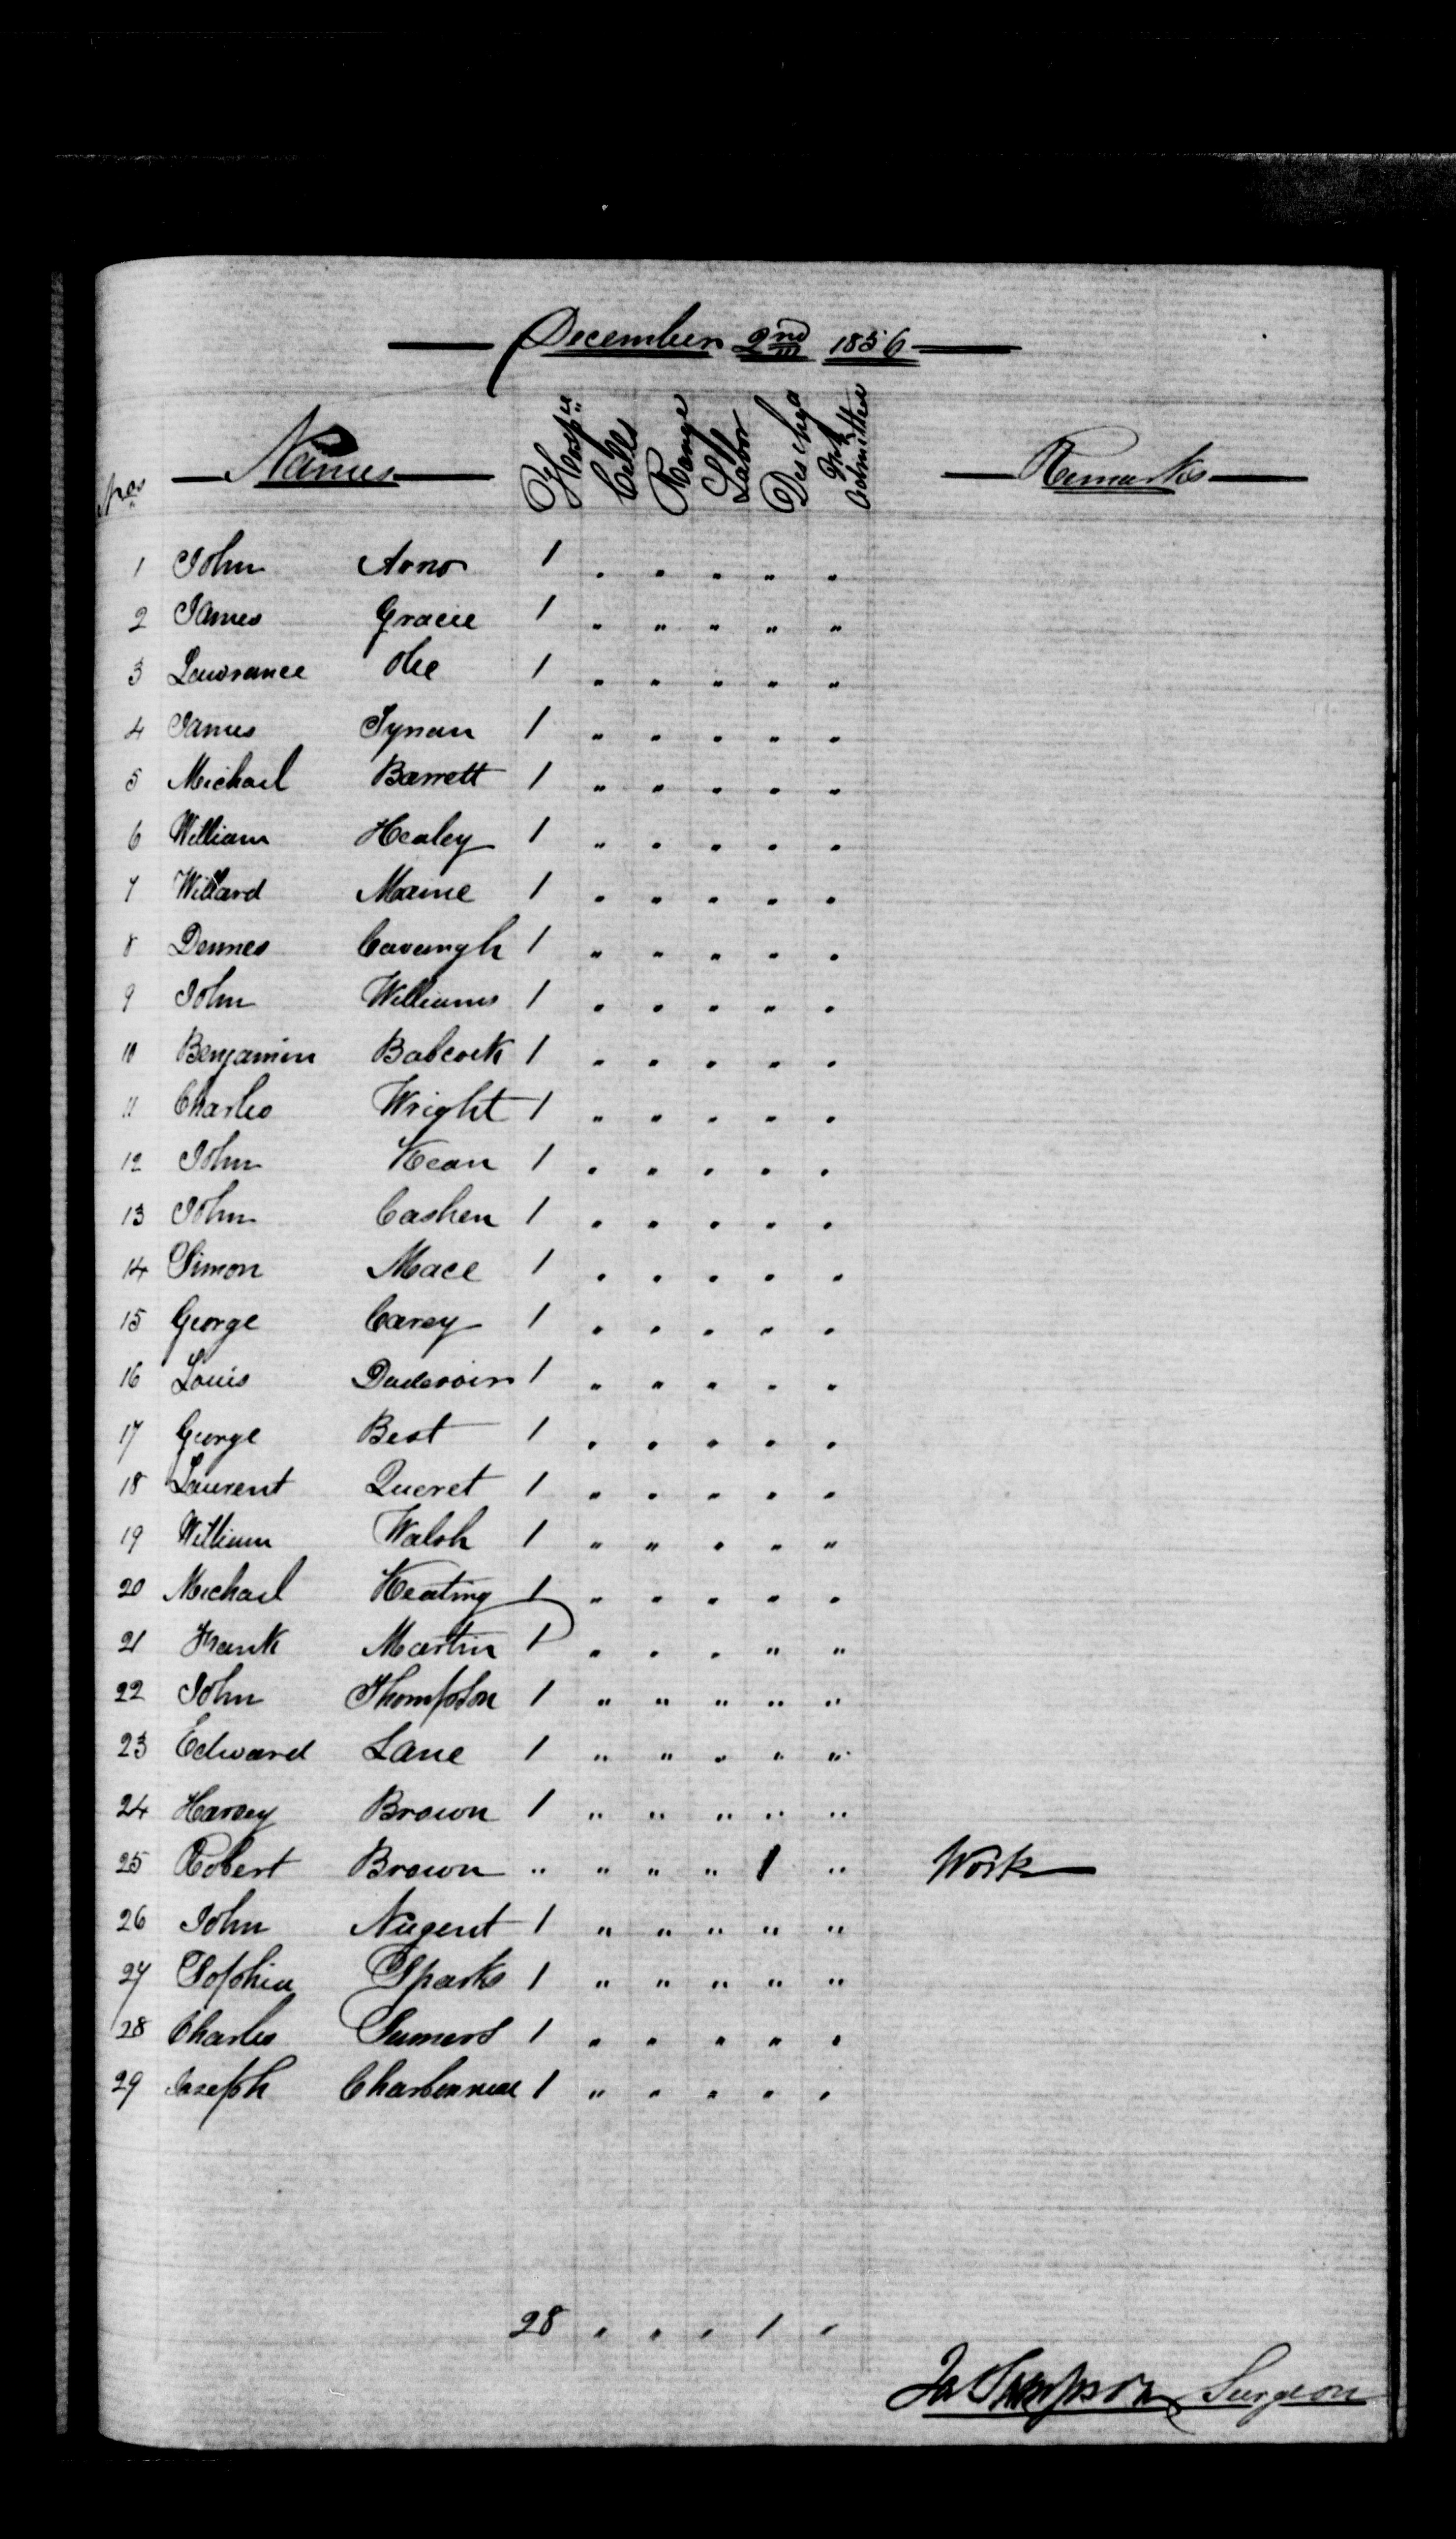 December 2nd 1856
Nos Names Hospl Cells Range Labor Deschgd Int Admitted Remarks
1 John Arno 1 " " " " "
2 James Gracie 1 " " " " "
3 Lawrance Olie 1 " " " " "
4 James Tynan 1 " " " " "
5 Michael Barrett 1 " " " " "
6 William Healey 1 " " " " "
7 Willard Maine 1 " " " " "
8 Dennes Cavaungh 1 " " " " "
9 John Williams 1 " " " " "
10 Benjamin Babcock 1 " " " " "
11 Charles Wright 1 " " " " "
12 John Kean 1 " " " " "
13 John Cashen 1 " " " " "
14 Simon Mace 1 " " " " "
15 George Carey 1 " " " " "
16 Louis Dadevoir 1 " " " " "
17 George Best 1 " " " " "
18 Laurent Queret 1 " " " " "
19 William Walsh 1 " " " " "
20 Michael Keating 1 " " " " "
21 Frank Martin 1 " " " " "
22 John Thompson 1 " " " " "
23 Edward Lane 1 " " " " "
24 Harvey Brown 1 " " " " "
25 Robert Brown " " " " 1 " Work
26 John Nugent 1 " " " " "
27 Sophia Sparks 1 " " " " "
28 Charles Sumers 1 " " " " "
29 Joseph Charbonneau 1 " " " " "
28 " " " 1 "
Ja Sampson Surgeon